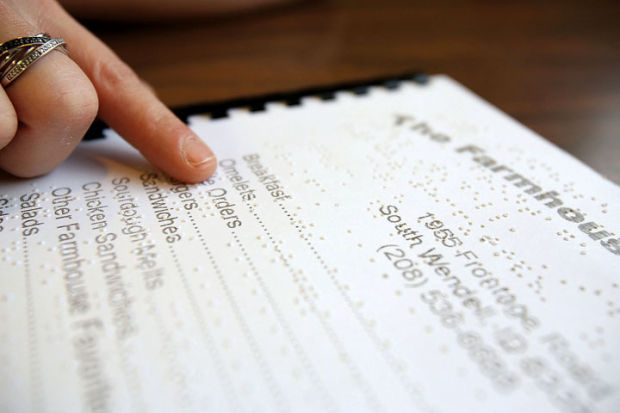 The Farmhouse
1955 Frontage Road
South Wendell, ID
(208) 536-6688
Breakfast
Omelets
Orders
Sandwiches
Sourdough Melts
Chicken Sandwiches
Other Farmhouse Favorite
Salads